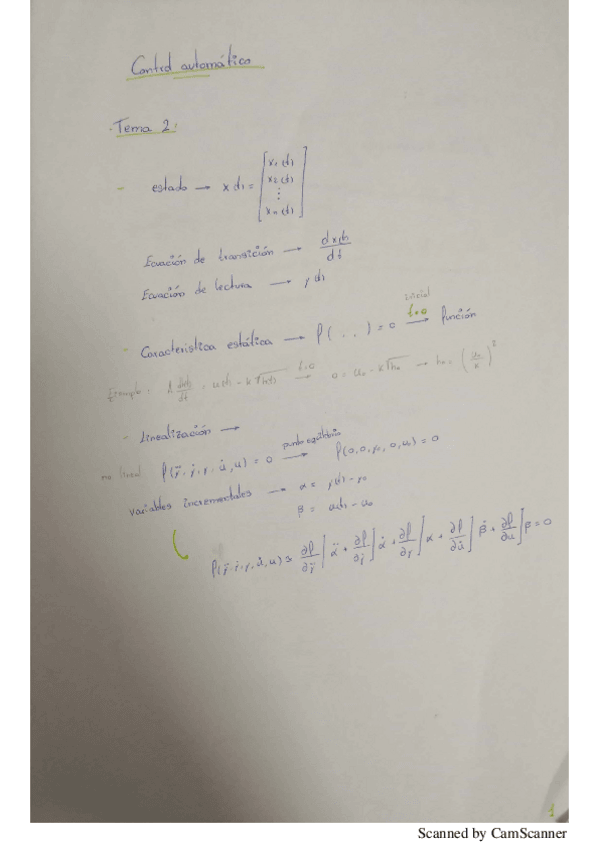 Control automático
· Tema 2:
- estado → x(t) = [x₁(t) x₂(t) ⋮ xₙ(t)]
Ecuación de transición → dx(t)/dt
Ecuación de lectura → y(t)
- Característica estática → f(. . .) = 0 → inicial t=0 función
Ejemplo · A dh(t)/dt = u(t) - k√h(t) → t=0 0 = u₀ - k√h₀ → h₀ = (u₀/k)²
- Linealización →
no lineal f(ÿ, ẏ, y, u̇, u) = 0 → punto equilibrio f(0,0,y₀,0,u₀) = 0
variables incrementales → α = y(t) - y₀
β = u(t) - u₀
f(ÿ, ẏ, y, u̇, u) ≈ ∂f/∂ÿ] α̈ + ∂f/∂ẏ] α̇ + ∂f/∂y] α + ∂f/∂u̇] β̇ + ∂f/∂u] β = 0
1
Scanned by CamScanner